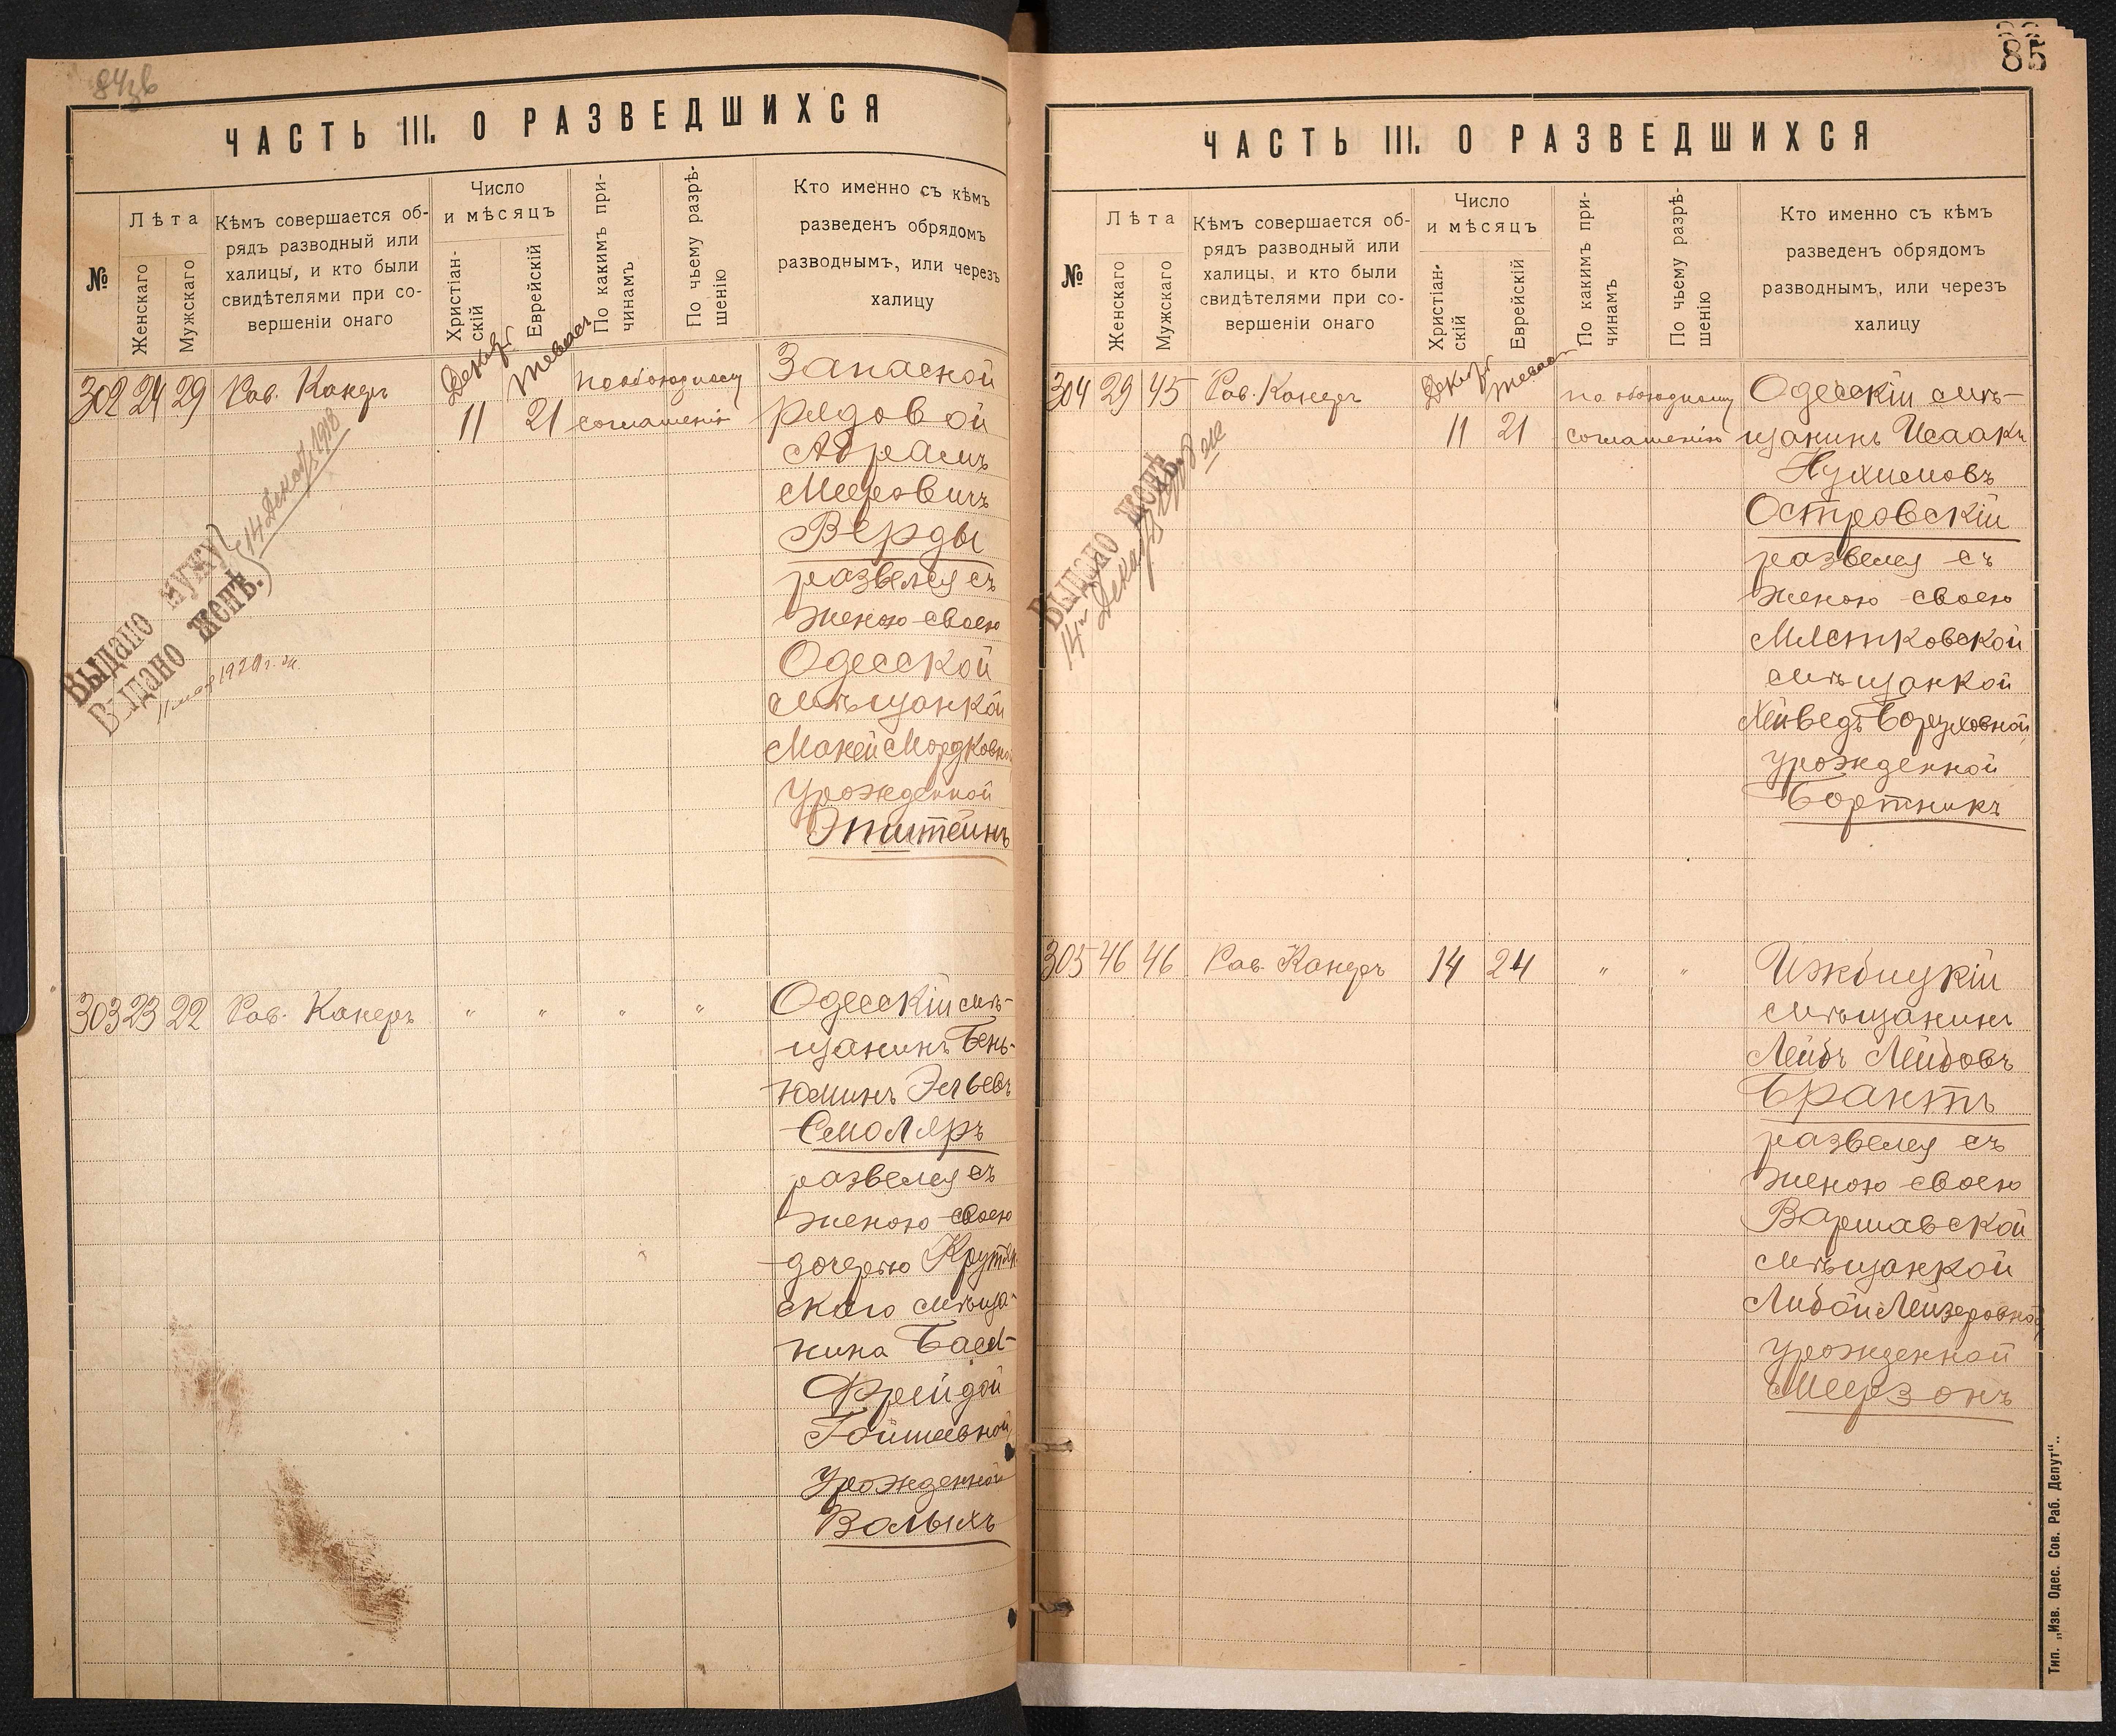 84зв
ЧАСТЬ III. О РАЗВЕДШИХСЯ
№
Лѣта
Женскаго
Мужскаго
Кѣмъ совершается об-
рядъ разводный или
халицы, и кто были
свидѣтелями при со-
вершеніи онаго
Число
и мѣсяцъ
Христіан-
скій
Еврейскій
По какимъ при-
чинамъ
По чьему разрѣ-
шенію
Кто именно съ кѣмъ
разведенъ обрядомъ
разводнымъ, или черезъ
халицу
302 24 29 Рав. Канеръ
Декаб.
11
Тевесъ
21
по обоюдному
согласенію
Запасной
рядовой
Абрамъ
Мееровичъ
Верды
развелся съ
женою своею
Одесской
мѣщанкой
Маней Мордковной
урожденной
Эпштейнъ
Выдано мужу
Выдано женѣ.
14 Декаб. 1918
11 мая 1920 г.
303 23 22 Рав. Канеръ " " " "
Одесскій мѣ-
щанинъ Бень-
юминъ Эльевъ
Смоляръ
развелся съ
женою своею
дочерью
скаго мѣща-
нина Басей-
Фрейдой
урожденной
85
ЧАСТЬ III. О РАЗВЕДШИХСЯ
№
Лѣта
Женскаго
Мужскаго
Кѣмъ совершается об-
рядъ разводный или
халицы, и кто были
свидѣтелями при со-
вершеніи онаго
Число
и мѣсяцъ
Христіан-
скій
Еврейскій
По какимъ при-
чинамъ
По чьему разрѣ-
шенію
Кто именно съ кѣмъ
разведенъ обрядомъ
разводнымъ, или черезъ
халицу
304 29 45 Рав. Канеръ
Декаб.
11
Тевесъ
21
по обоюдному
согласенію
Одесскій мѣ-
щанинъ Исаакъ
Нухимовъ
Островскій
развелся съ
женою своею
Мястковской
мѣщанкой
Хейведъ Боруховной,
урожденной
Бортникъ
Выдано женѣ.
14 Декаб. 1918
305 46 46 Рав. Канеръ 14 24 " "
Ижбицкій
мѣщанинъ
Лейбъ Лейбовъ
Брантъ
развелся съ
женою своею
Варшавской
мѣщанкой
Либой Лейзеровной,
урожденной
Меерзонъ
Тип. „Изв. Одес. Сов. Раб. Депут“..